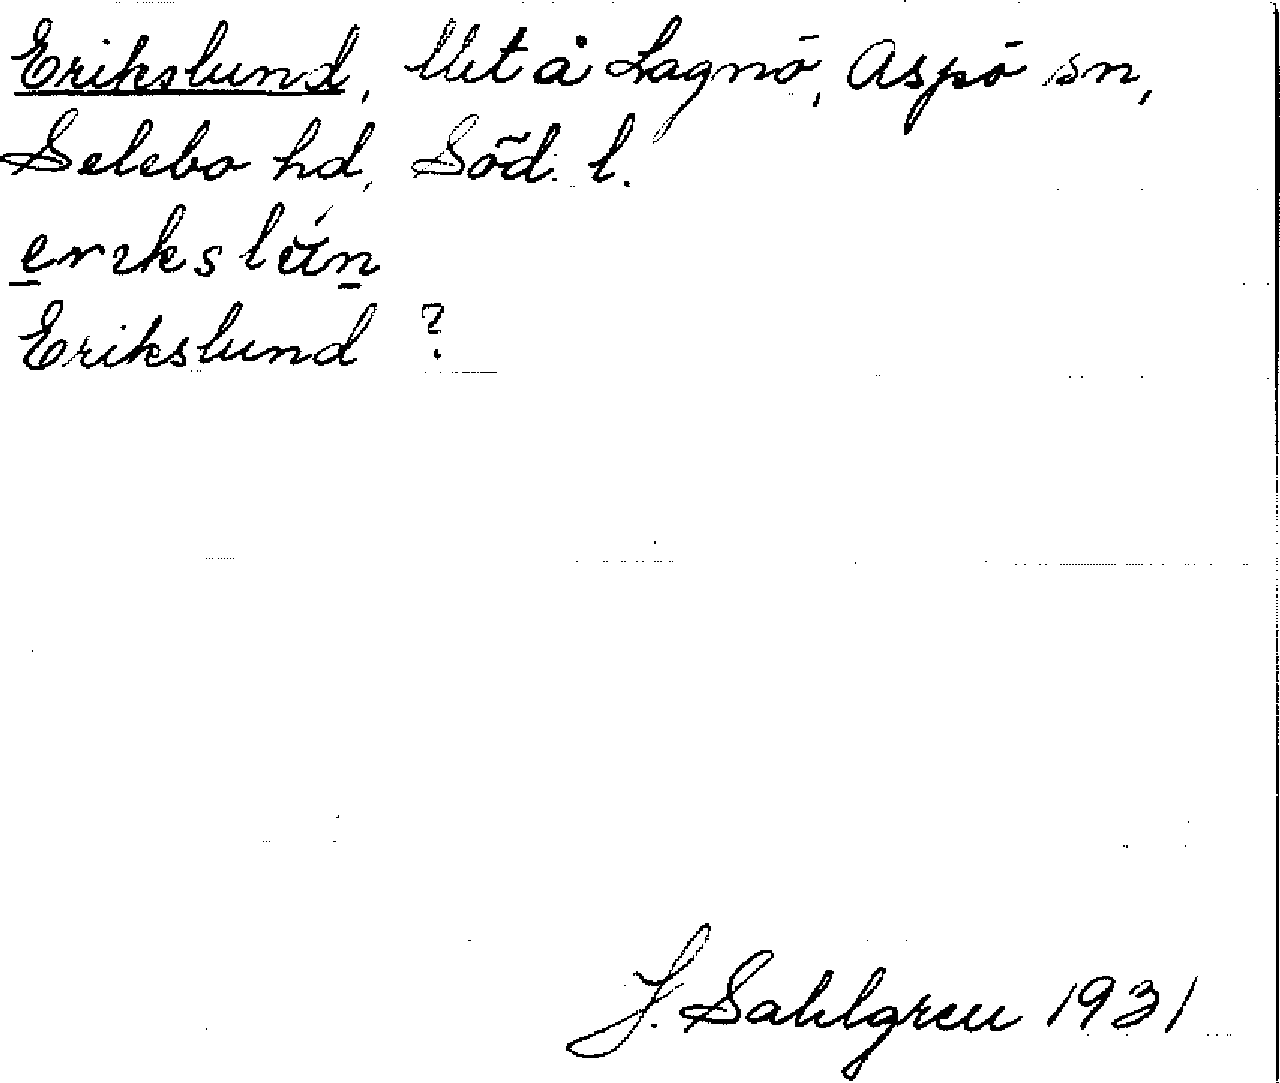 Erikslund, Utå Lagnö, Aspö sn,
Selebo hd, Söd. l.
Erikslund ?
J. Sahlgren 1931